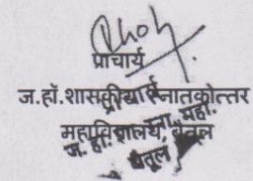 प्राचार्य
ज.हॉ.शासकीय स्नातकोत्तर
महाविद्यालय, बैतूल
ज. हॉ. महा.
बैतूल